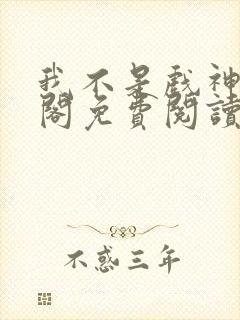 我不是戲神
閣免費閱讀
不惑三年